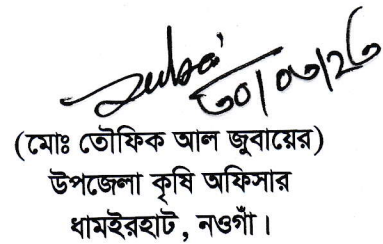 ৩০/০৩/২৬
(মোঃ তৌফিক আল জুবায়ের)
উপজেলা কৃষি অফিসার
ধামইরহাট, নওগাঁ।